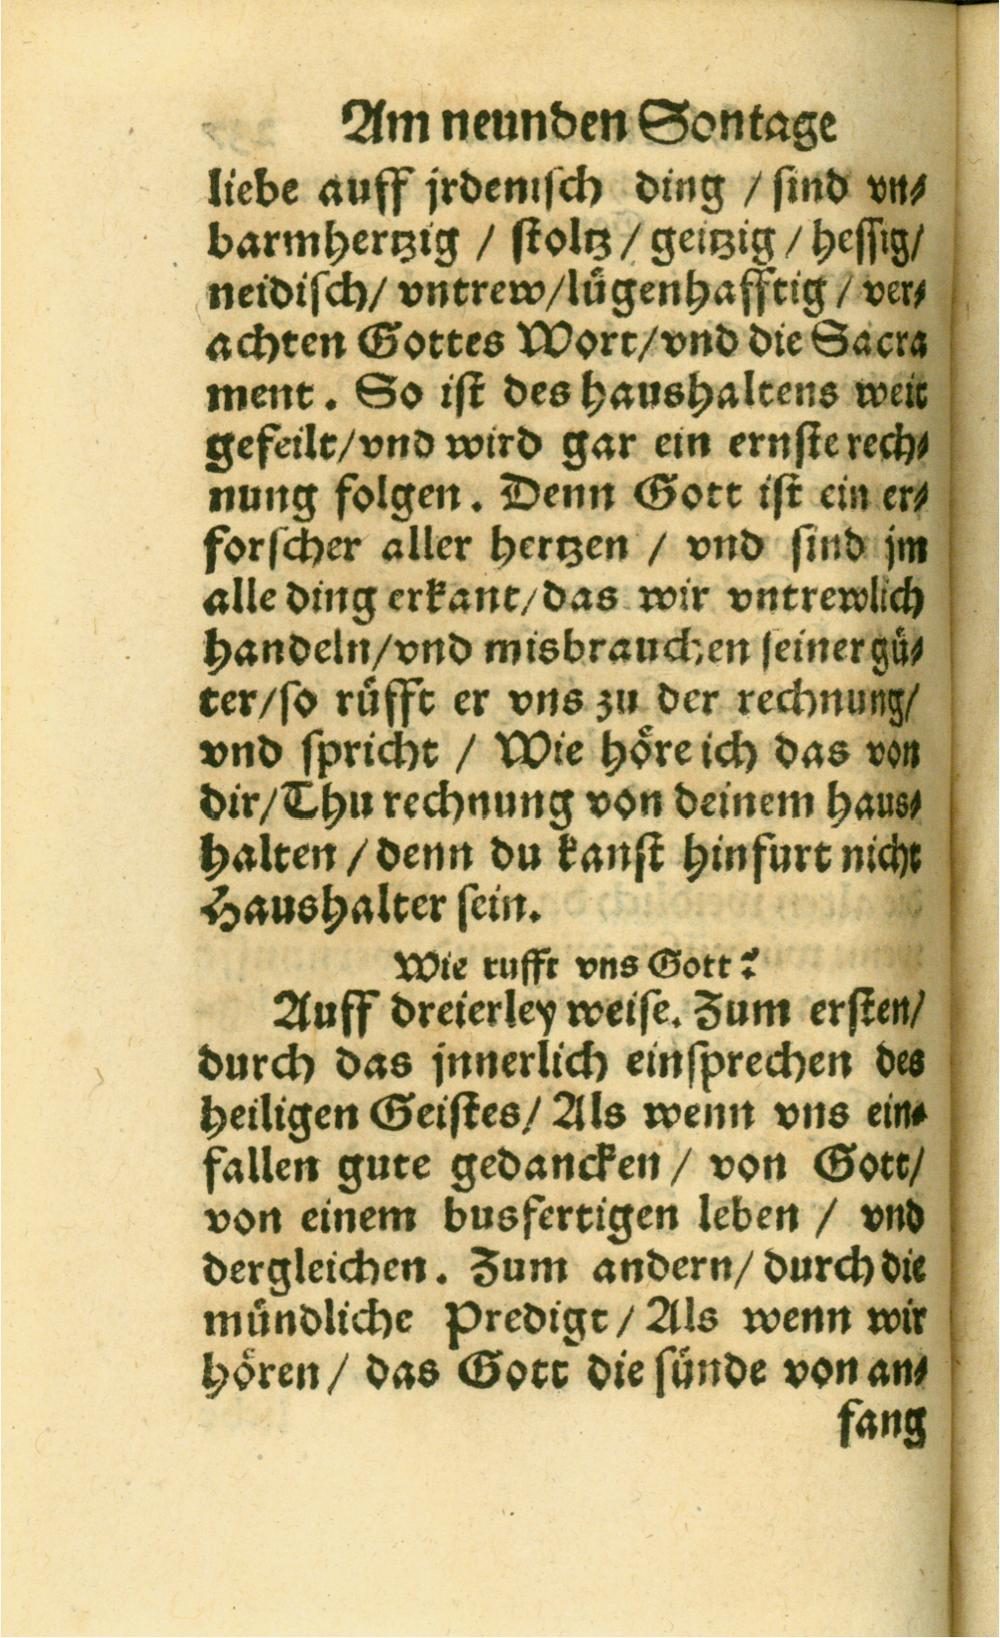 Am neunden Sontage
liebe auff jrdenisch ding / sind vn⸗
barmhertzig / stoltz / geitzig / hessig/
neidisch/ vntrew/lügenhafftig / ver⸗
achten Gottes Wort/vnd die Sacra
ment. So ist des haushaltens weit
gefeilt/vnd wird gar ein ernste rech⸗
nung folgen. Denn Gott ist ein er⸗
forscher aller hertzen / vnd sind jm
alle ding erkant/das wir vntrewlich
handeln/vnd misbrauchen seiner gü⸗
ter/so rüfft er vns zu der rechnung/
vnd spricht / Wie höre ich das von
dir/Thu rechnung von deinem haus⸗
halten / denn du kanst hinfurt nicht
Haushalter sein.
Wie rufft vns Gott?
Auff dreierley weise. Zum ersten/
durch das jnnerlich einsprechen des
heiligen Geistes/ Als wenn vns ein⸗
fallen gute gedancken / von Gott/
von einem busfertigen leben / vnd
dergleichen. Zum andern/ durch die
mündliche Predigt / Als wenn wir
hören / das Gott die sünde von an⸗
fang